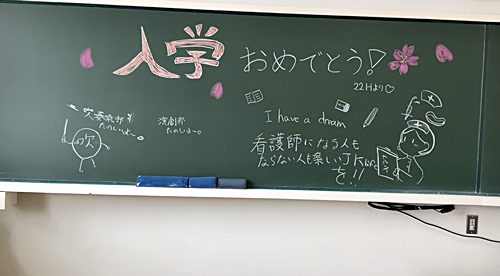 入学おめでとう!
22Hより♡
吹奏楽部も
たのしいよ~。
演劇部
たのしいよ~。
吹
I have a dream
看護師になる人も
ならない人も楽しいJK Life
を!!